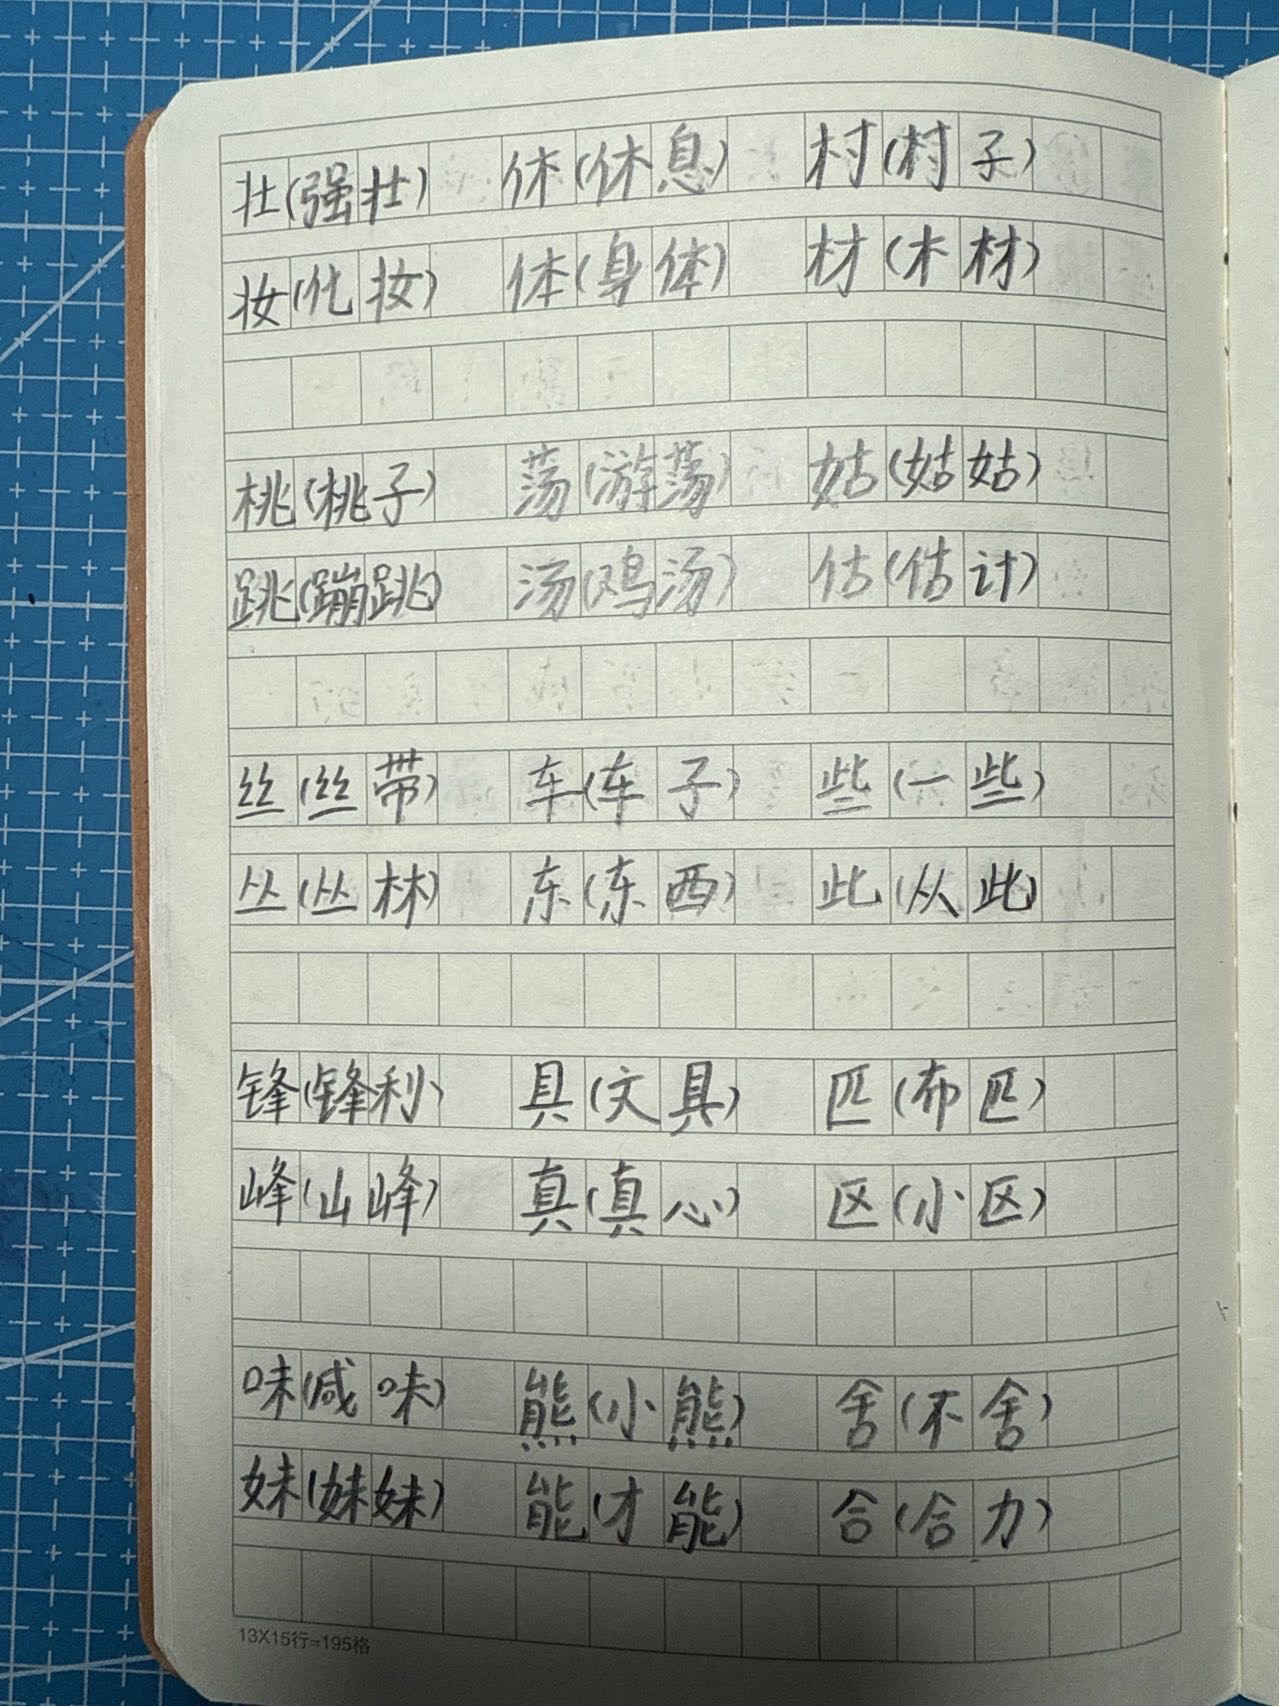 壮(强壮) 休(休息) 村(村子)
妆(化妆) 体(身体) 材(木材)
桃(桃子) 荡(游荡) 姑(姑姑)
跳(蹦跳) 汤(鸡汤) 估(估计)
丝(丝带) 车(车子) 些(一些)
丛(丛林) 东(东西) 此(从此)
锋(锋利) 具(文具) 匹(布匹)
峰(山峰) 真(真心) 区(小区)
味(咸味) 熊(小熊) 舍(不舍)
妹(妹妹) 能(才能) 合(合力)
13X15行=195格